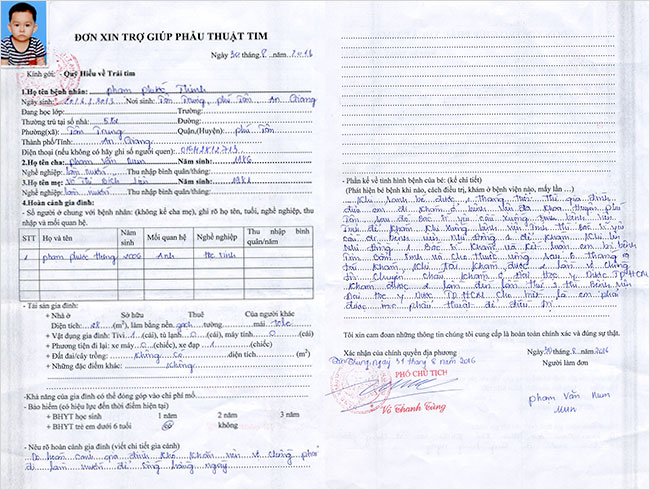 ĐƠN XIN TRỢ GIÚP PHẪU THUẬT TIM
Ngày 30 tháng 8 năm 2016
Kính gởi: Quỹ Hiểu về Trái tim
1.Họ tên bệnh nhân: phạm phước Thịnh
Ngày sinh: 2013 Nơi sinh: Tân Trung, phú Tân, An Giang
Đang học lớp: Trường:
Thường trú tại số nhà: Đường:
Phường(xã): Tân Trung Quận,(Huyện): phú Tân
Thành phố/Tỉnh: An Giang
Điện thoại (nếu không có hãy ghi số người quen):
2.Họ tên cha: phạm Văn Năm sinh: 1986
Nghề nghiệp: làm mướn Thu nhập bình quân/tháng:
3.Họ tên mẹ: Võ Thị Bích Năm sinh:
Nghề nghiệp: làm mướn Thu nhập bình quân/tháng:
4.Hoàn cảnh gia đình:
- Số người ở chung với bệnh nhân: (không kể cha mẹ), ghi rõ họ tên, tuổi, nghề nghiệp, thu
nhập và mối quan hệ.
STT Họ và tên Năm sinh Mối quan hệ Nghề nghiệp Thu nhập bình quân/năm
1 phạm phước 2006 Anh Học sinh
- Tài sản gia đình:
+ Nhà ở Sở hữu Thuê Của người khác
Diện tích: 28 (m²), làm bằng nền gạch tường mái tole
+ Vật dụng gia đình: Tivi 1 (cái), tủ lạnh 0 (cái) máy tính 0 (cái)
+ Phương tiện đi lại: xe máy 0 (chiếc), xe đạp 1 (chiếc)
+ Đất đai/cây trồng: không có diện tích (m²)
+ Những đặc điểm khác: không
-Khả năng của gia đình có thể đóng góp vào chi phí mổ.
- Bảo hiểm (có hiệu lực đến thời điểm hiện tại)
+ BHYT học sinh 1 năm 2 năm 3 năm
+ BHYT trẻ em dưới 6 tuổi có không
- Nêu rõ hoàn cảnh gia đình (viết chi tiết gia cảnh)
Do hoàn cảnh gia đình khó khăn nên vợ chồng phải
đi làm mướn để sống hằng ngày
- Phần kể về tình hình bệnh của bé: (kể chi tiết)
(Phát hiện bé bệnh khi nào, cách điều trị, khám ở bệnh viện nào, mấy lần ...)
Khi sanh bé được 1 tháng tuổi thì gia đình
đưa em đi khám ở bệnh viện đa khoa huyện phú
Tân sau đó bác sĩ yêu cầu xuống bệnh viện
Tỉnh để khám khi xuống bệnh viện tỉnh thì bác sĩ yêu
cầu đi bệnh viện nhi đồng 1 để khám khi lên
khám được 2 lần đến lần thứ 3 thì bệnh viện
Đại học y Dược TP.HCM cho biết là em phải
được mổ phẫu thuật
Tôi xin cam đoan những thông tin chúng tôi cung cấp là hoàn toàn chính xác và đúng sự thật.
Xác nhận của chính quyền địa phương Ngày 30 tháng 8 năm 2016
Tân Trung, ngày 31 tháng 8 năm 2016 Người làm đơn
PHÓ CHỦ TỊCH
Võ Thanh Tùng
phạm Văn